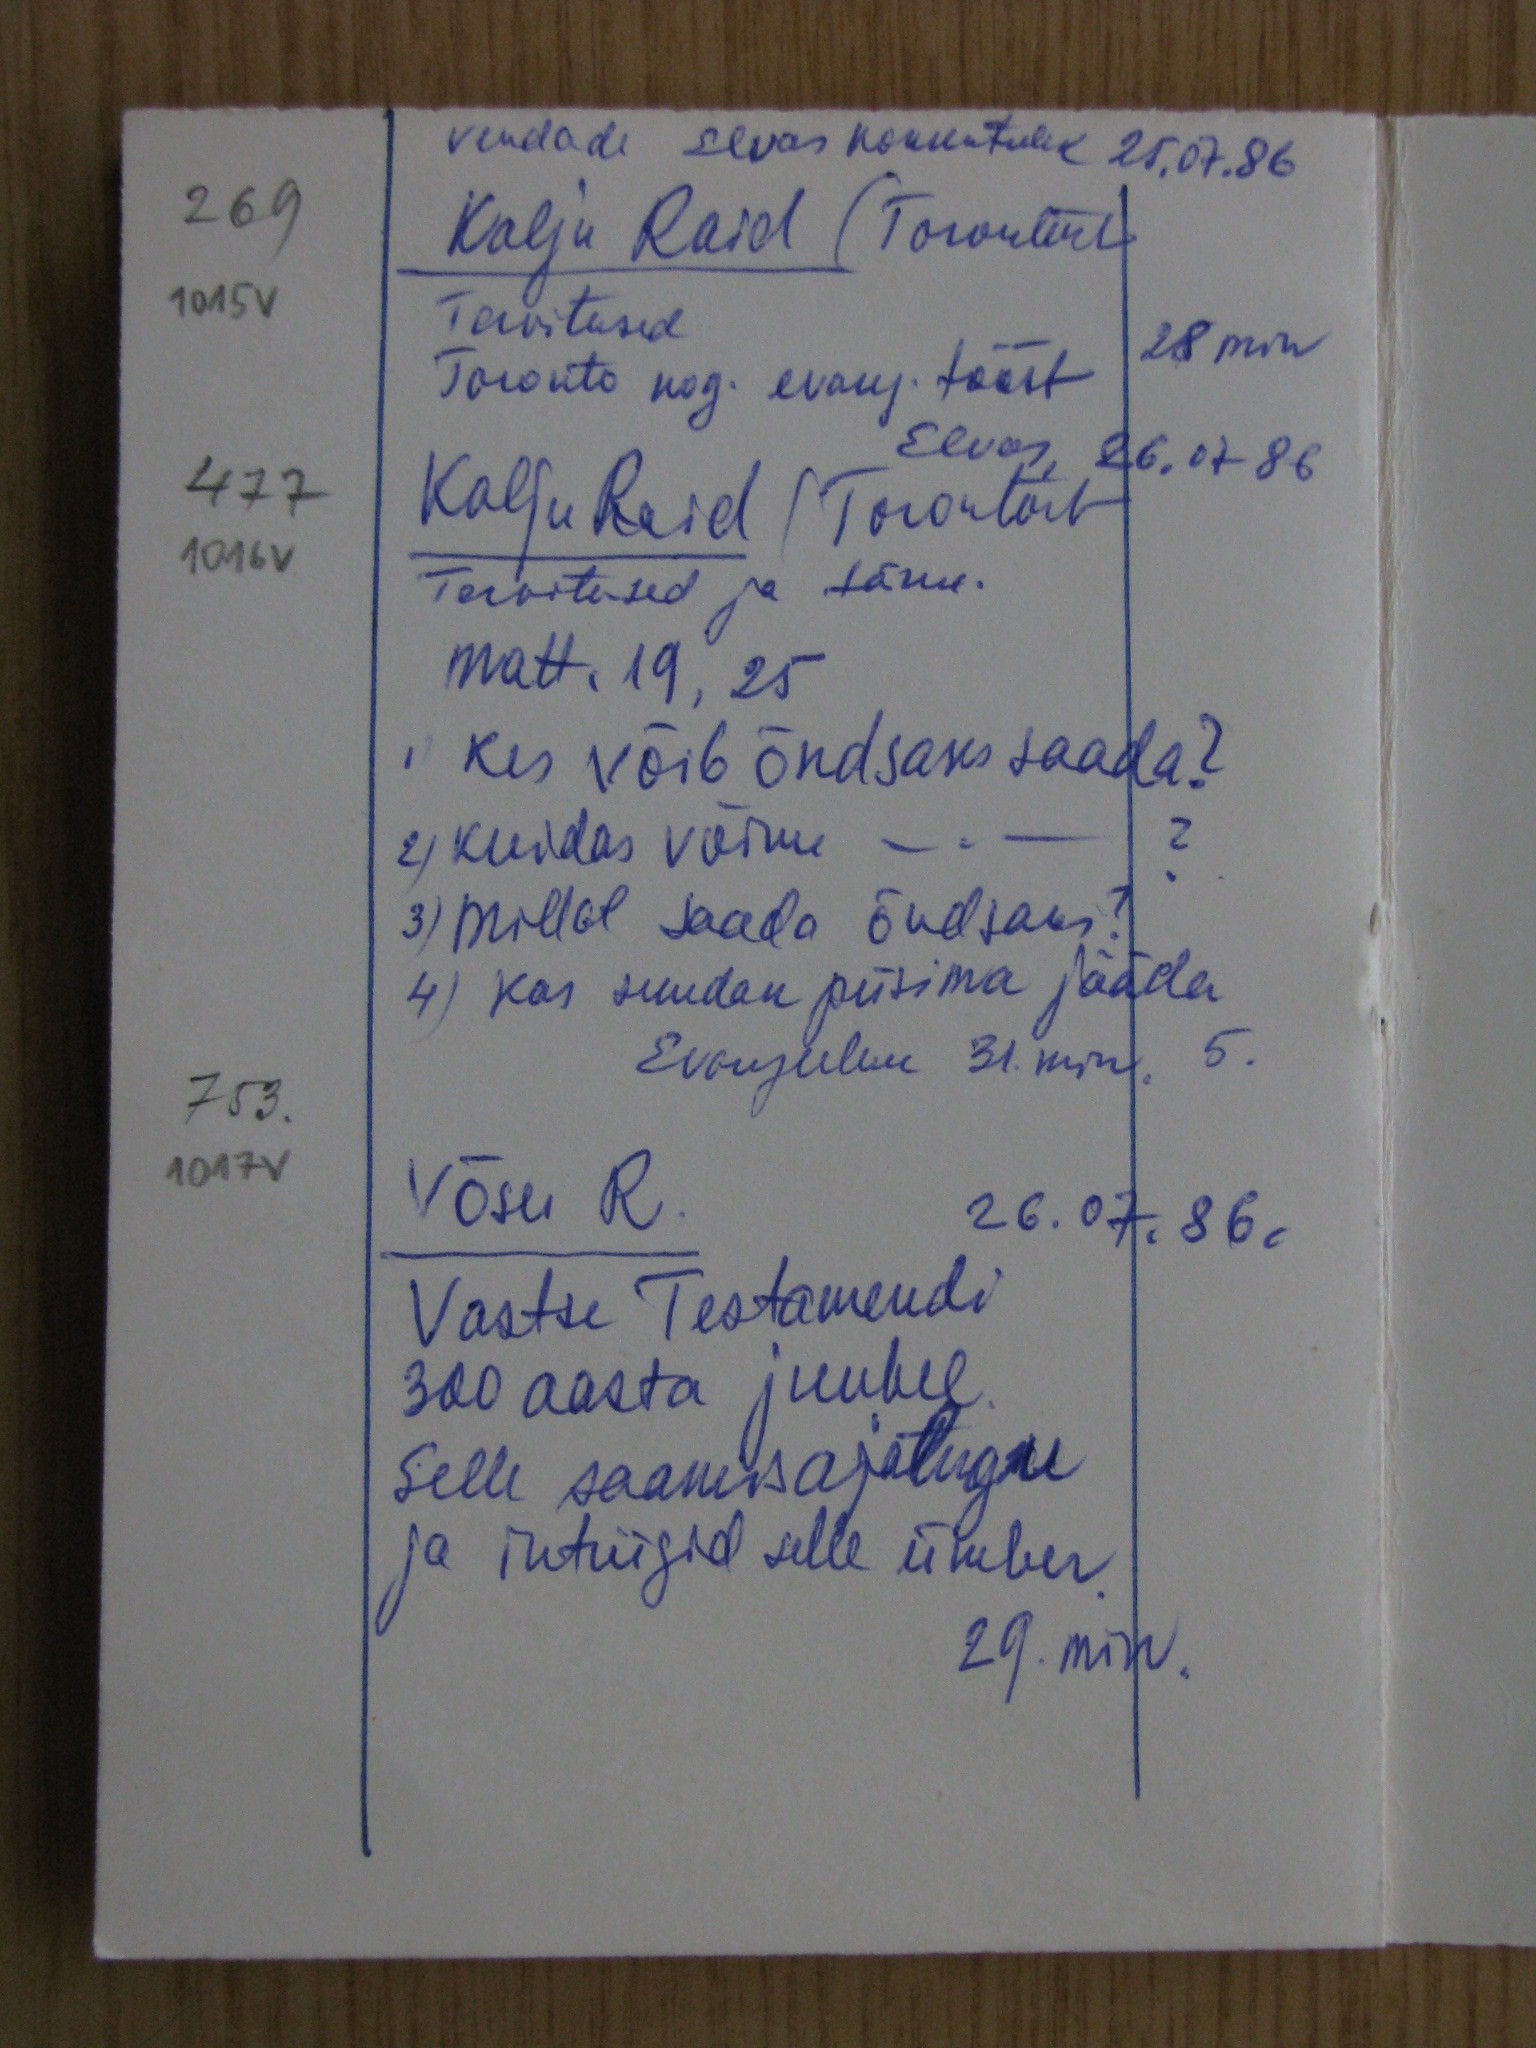 vendade Elvas kokkutulek 25.07.86
269 Kalju Raid (Torontost
1015V Tervitused
28 min
Toronto kog. evang. tööst
Elvas, 26.07 86
477 Kalju Raid (Torontost
1016V Tervitused ja sõnu.
Matt. 19, 25
1) Kes võib õndsaks saada?
2) Kuidas võime — . — ?
3) Millal saada õndsaks?
4) Kas suudan püsima jääda
31. min. 5.
753.
1017V Võsu R. 26.07.86.
Vastse Testamendi
300 aasta juubel.
Selle saamisajalugu
ja intriigid selle ümber.
29. min.